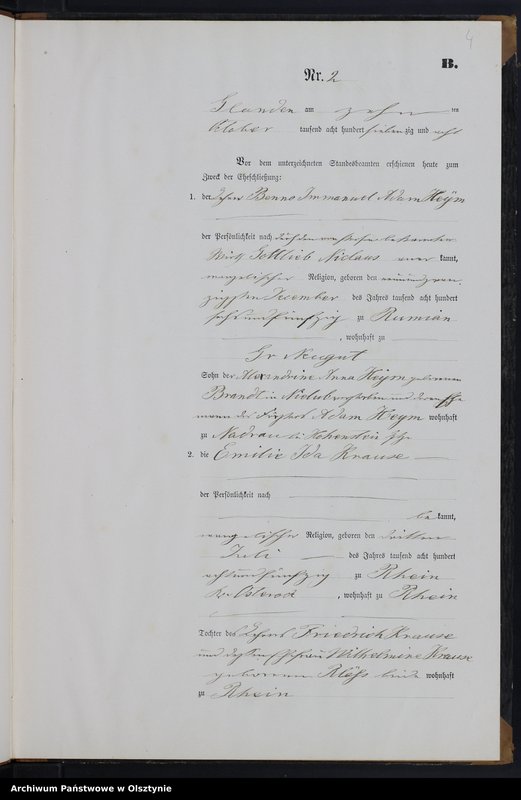 4
B.
Nr. 2
Glanden am zehn ten
October tausend acht hundert siebenzig und acht
Vor dem unterzeichneten Standesbeamten erschienen heute zum
Zweck der Eheschließung:
1. der Lehrer Benno Immanuel Adam Heÿm
der Persönlichkeit nach durch den
Wirth Gottlieb Niclaus aner kannt,
evangelischer Religion, geboren den
zigsten December des Jahres tausend acht hundert
sechsundfünfzig zu Rumian
, wohnhaft zu
Gr Neugut
Sohn der Alexandrine Anna Heÿm geborenen
Brandt in
Adam Heym wohnhaft
zu Nadrau bei Hohenstein
2. die Emilie Ida Krause
der Persönlichkeit nach
be kannt,
evangelischer Religion, geboren den dritten
Juli des Jahres tausend acht hundert
achtundfünfzig zu Rhein
Kr. Osterode , wohnhaft zu Rhein
Tochter des Lehrers Friedrich Krause
und dessen Ehefrau Wilhelmine Krause
geborenen beide wohnhaft
zu Rhein
Archiwum Państwowe w Olsztynie